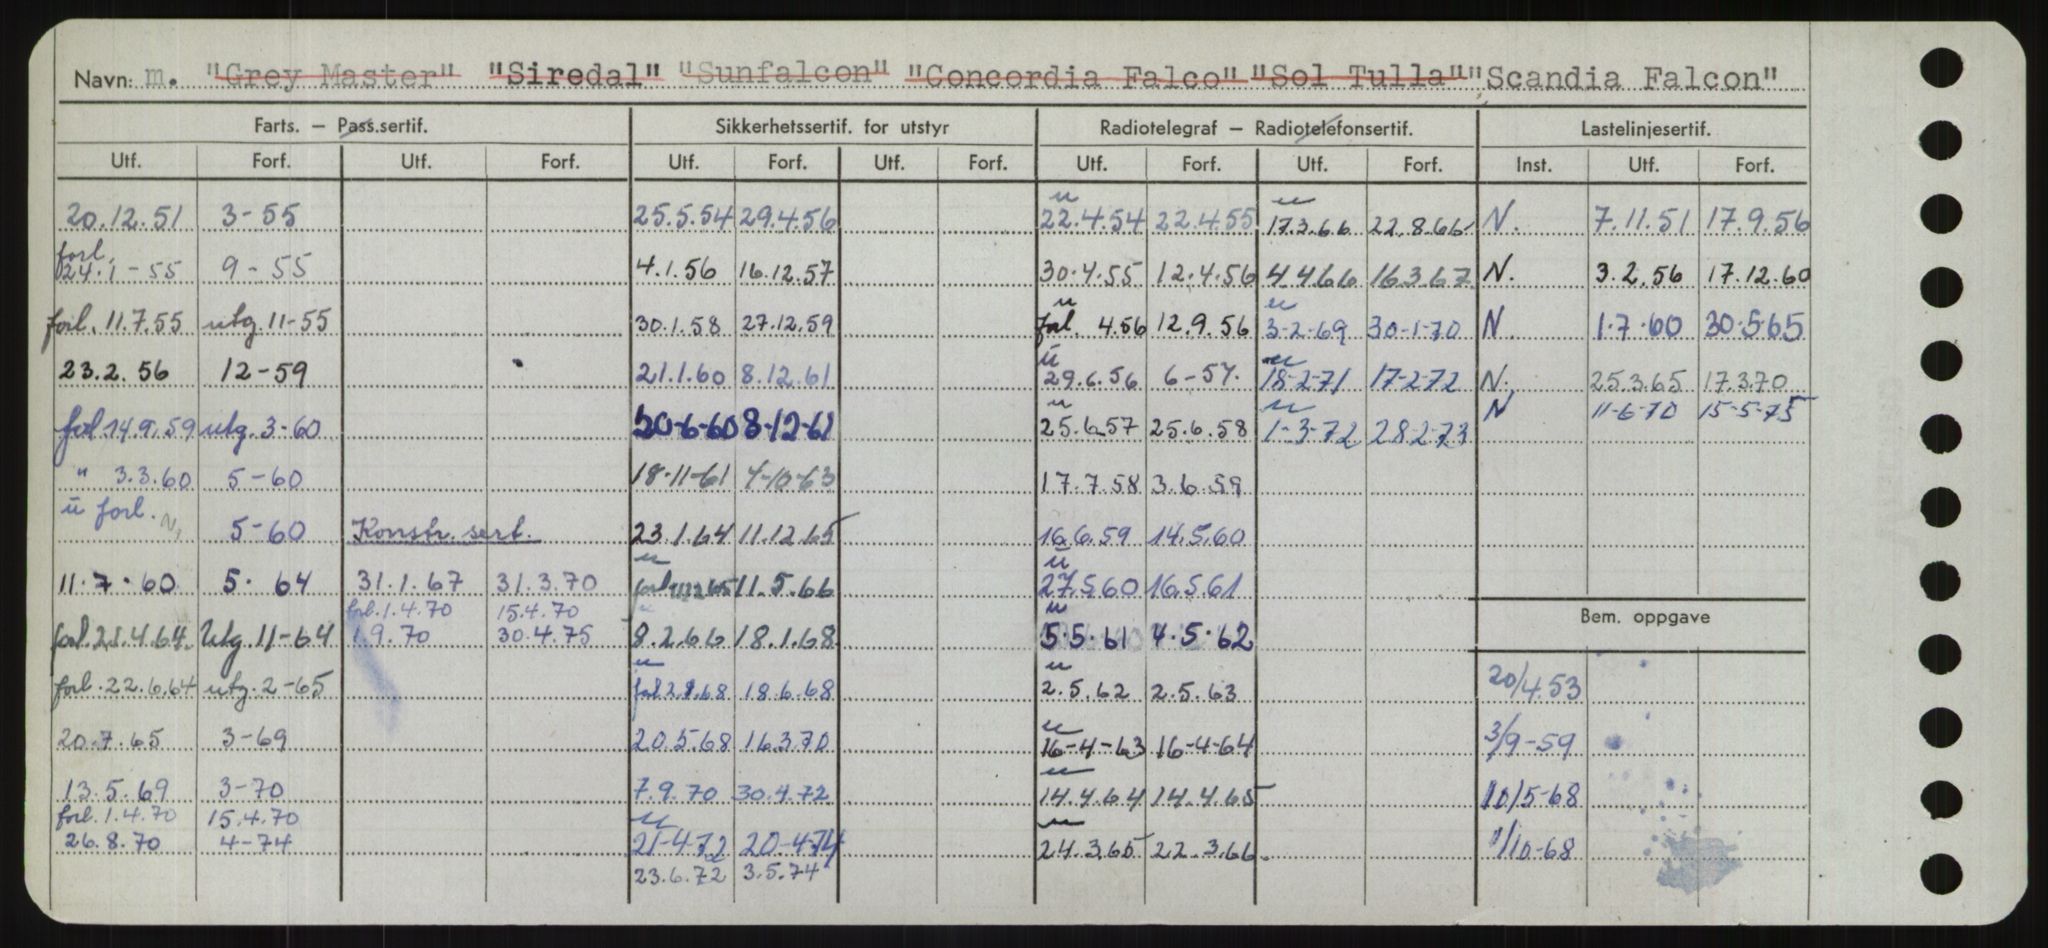 Navn: m. "Grey Master" "Siredal" "Sunfalcon" "Concordia Falco" "Sol Tulla" "Scandia Falcon"
Farts. — Pass.sertif. Sikkerhetssertif. for utstyr Radiotelegraf — Radiotelefonsertif. Lastelinjesertif.
Utf. Forf. Utf. Forf. Utf. Forf. Utf. Forf. Utf. Forf. Utf. Forf. Inst. Utf. Forf.
u u
20.12.51 3-55 25.5.54 29.4.56 22.4.54 22.4.55 17.3.66 22.8.66 N. 7.11.51 17.9.56
forl.
24.1-55 9-55 4.1.56 16.12.57 30.4.55 12.4.56 4466 16367 N. 3.2.56 17.12.60
u u
forl. 11.7.55 utg. 11-55 30.1.58 27.12.59 forl. 4.56 12.9.56 3-2-69 30-1-70 N 1.7.60 30.5.65
u u
23.2.56 12-59 21.1.60 8.12.61 29.6.56 6-57. 18-2-71 17-2-72 N. 25.3.65 17.3.70
u u N 11-6-70 15-5-75
forl 14.9.59 utg. 3-60 20-6-60 8-12-61 25.6.57 25.6.58 1-3-72 28-2-73
" 3.3.60 5-60 18-11-61 4-10-63 17.7.58 3.6.59
u forl.
5-60 Konstr. sert. 23.1.64 11.12.65 16.6.59 14.5.60
u u
11.7.60 5.64 31.1.67 31.3.70 forl 11.5.66 27.5.60 16.5.61
forl. 1.4.70 15.4.70 u
forl. 21.4.64. Utg. 11-64 1.9.70 30.4.75 8.2.66 18.1.68 5.5.61 4.5.62
Bem. oppgave
u u
forl. 22.6.64 utg. 2-65 forl 18.6.68 2.5.62 2.5.63 20/4.53
u
20.7.65 3-69 20.5.68 16.3.70 16-4-63 16-4-64 3/9-59
u
13.5.69 3-70 7.9.70 30.4.72 14.4.64 14.4.65 10/5-68
forl. 1.4.70 15.4.70 u u
26.8.70 4-74 21-4-72 20-4-74 24.3.65 22.3.66. 1/10-68
23.6.72 3.5.74